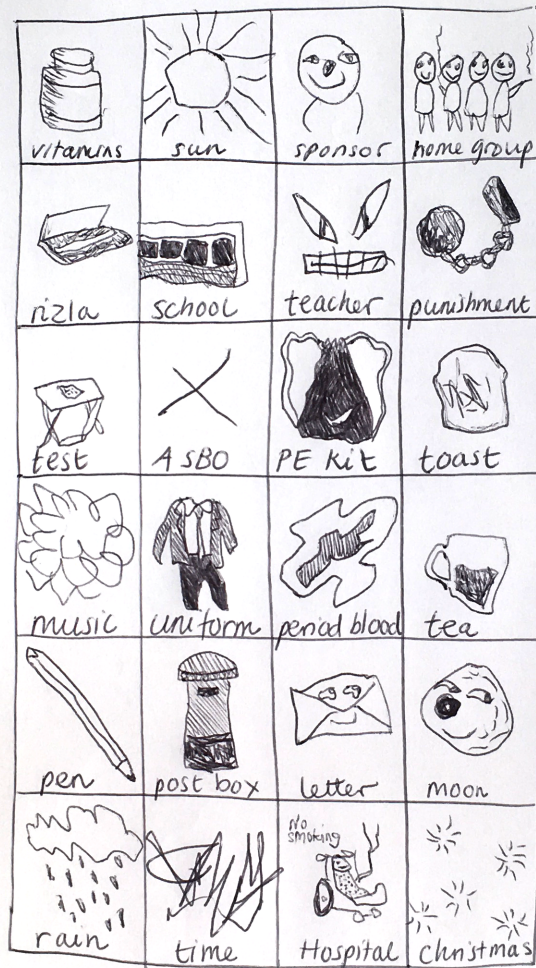 vitamins
sun
sponsor
home group
rizla
school
teacher
punishment
test
ASBO
PE Kit
toast
music
uniform
period blood
tea
pen
post box
letter
moon
No
smoking
rain
time
Hospital
Christmas